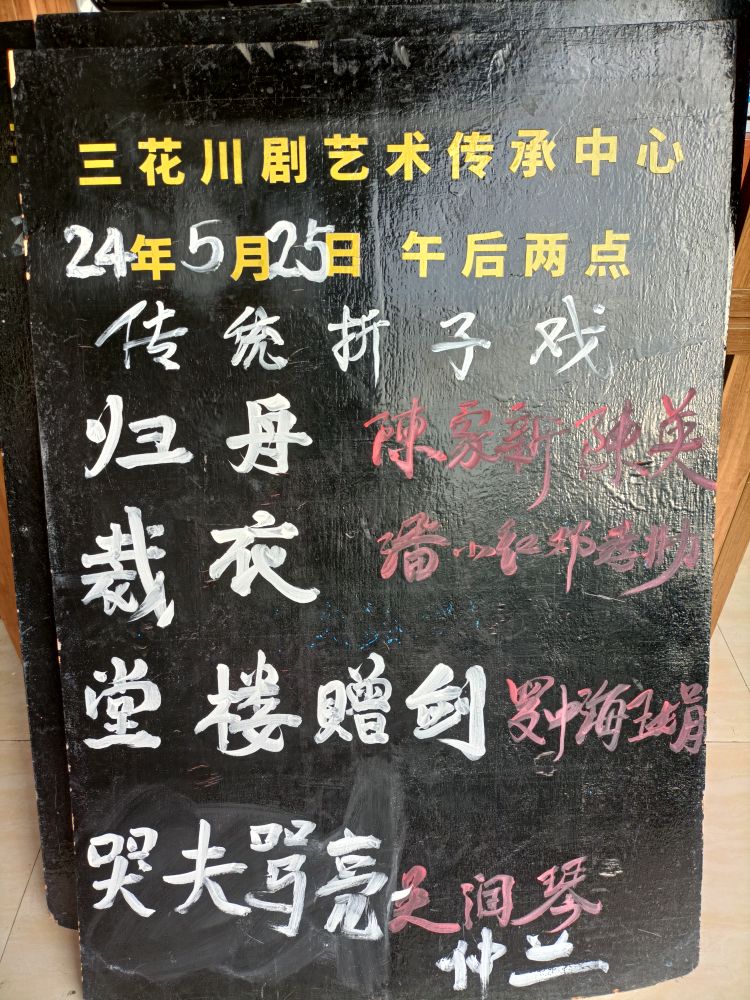 三花川剧艺术传承中心
24年5月25日 午后两点
传统折子戏
归丹 陳家新 陈英
裁衣 潘小红 邓孝助
堂楼赠剑 罗中海 娟
哭夫骂亮 吴润琴
仲兰